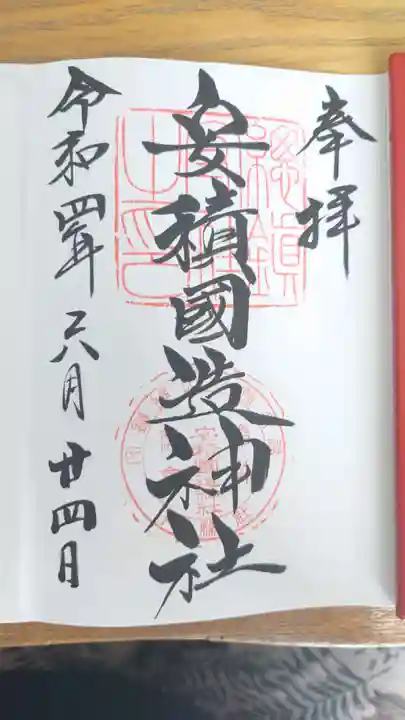 奉拝
安積國造神社
令和四年六月廿四日